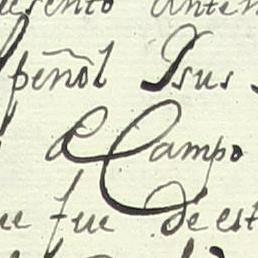 uesento anten
peñol Ysus
de Campo
ue fue de est